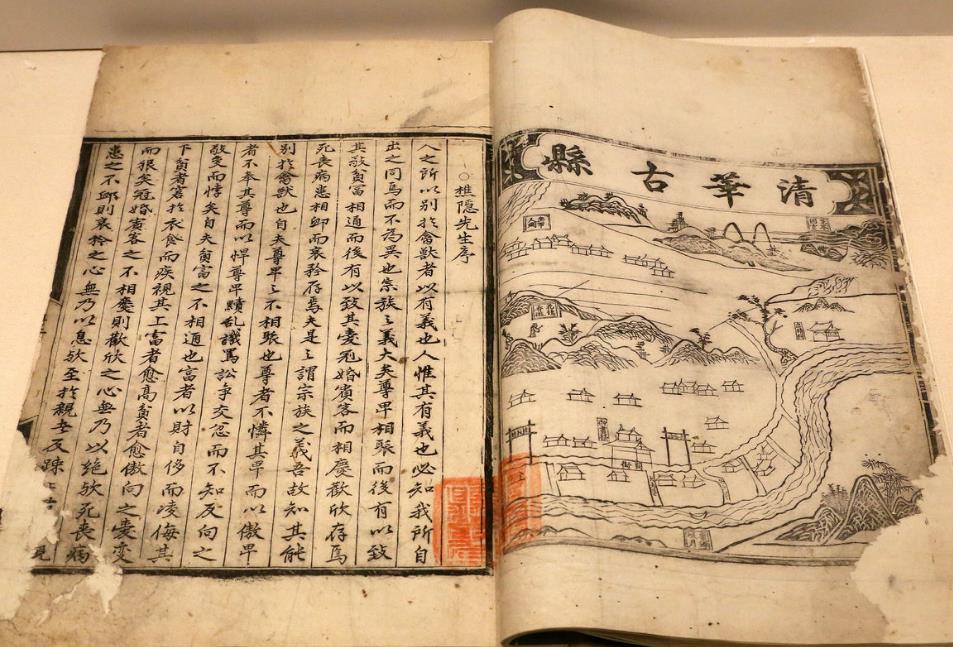 清華古縣
○樵隐先生序
人之所以别扵禽獸者以有義也人惟其有義也必知我所自
出之同焉而不為異也宗族之義大矣尊卑相聚而後有以致
其敬貧富相通而後有以致其愛冠婚賓客而相慶歡欣存焉
死丧病患相卹而哀矜存焉夫是之謂宗族之義吾故知其能
别扵禽獸也自夫尊卑之不相聚也尊者不憐其卑而以傲卑
者不奉其尊而以悍尊卑瀆乱譏罵訟争交忽而不知反向之
敬变而悖矣自夫貧富之不相通也富者以財自侈而凌侮其
下貧者窘扵衣食而疾視其上富者愈高貧者愈傲向之愛变
而狠矣冠婚賓客之不相慶則歡欣之心無乃以絶欤死丧病
患之不卹則哀矜之心無乃以息欤至扵親 反踈